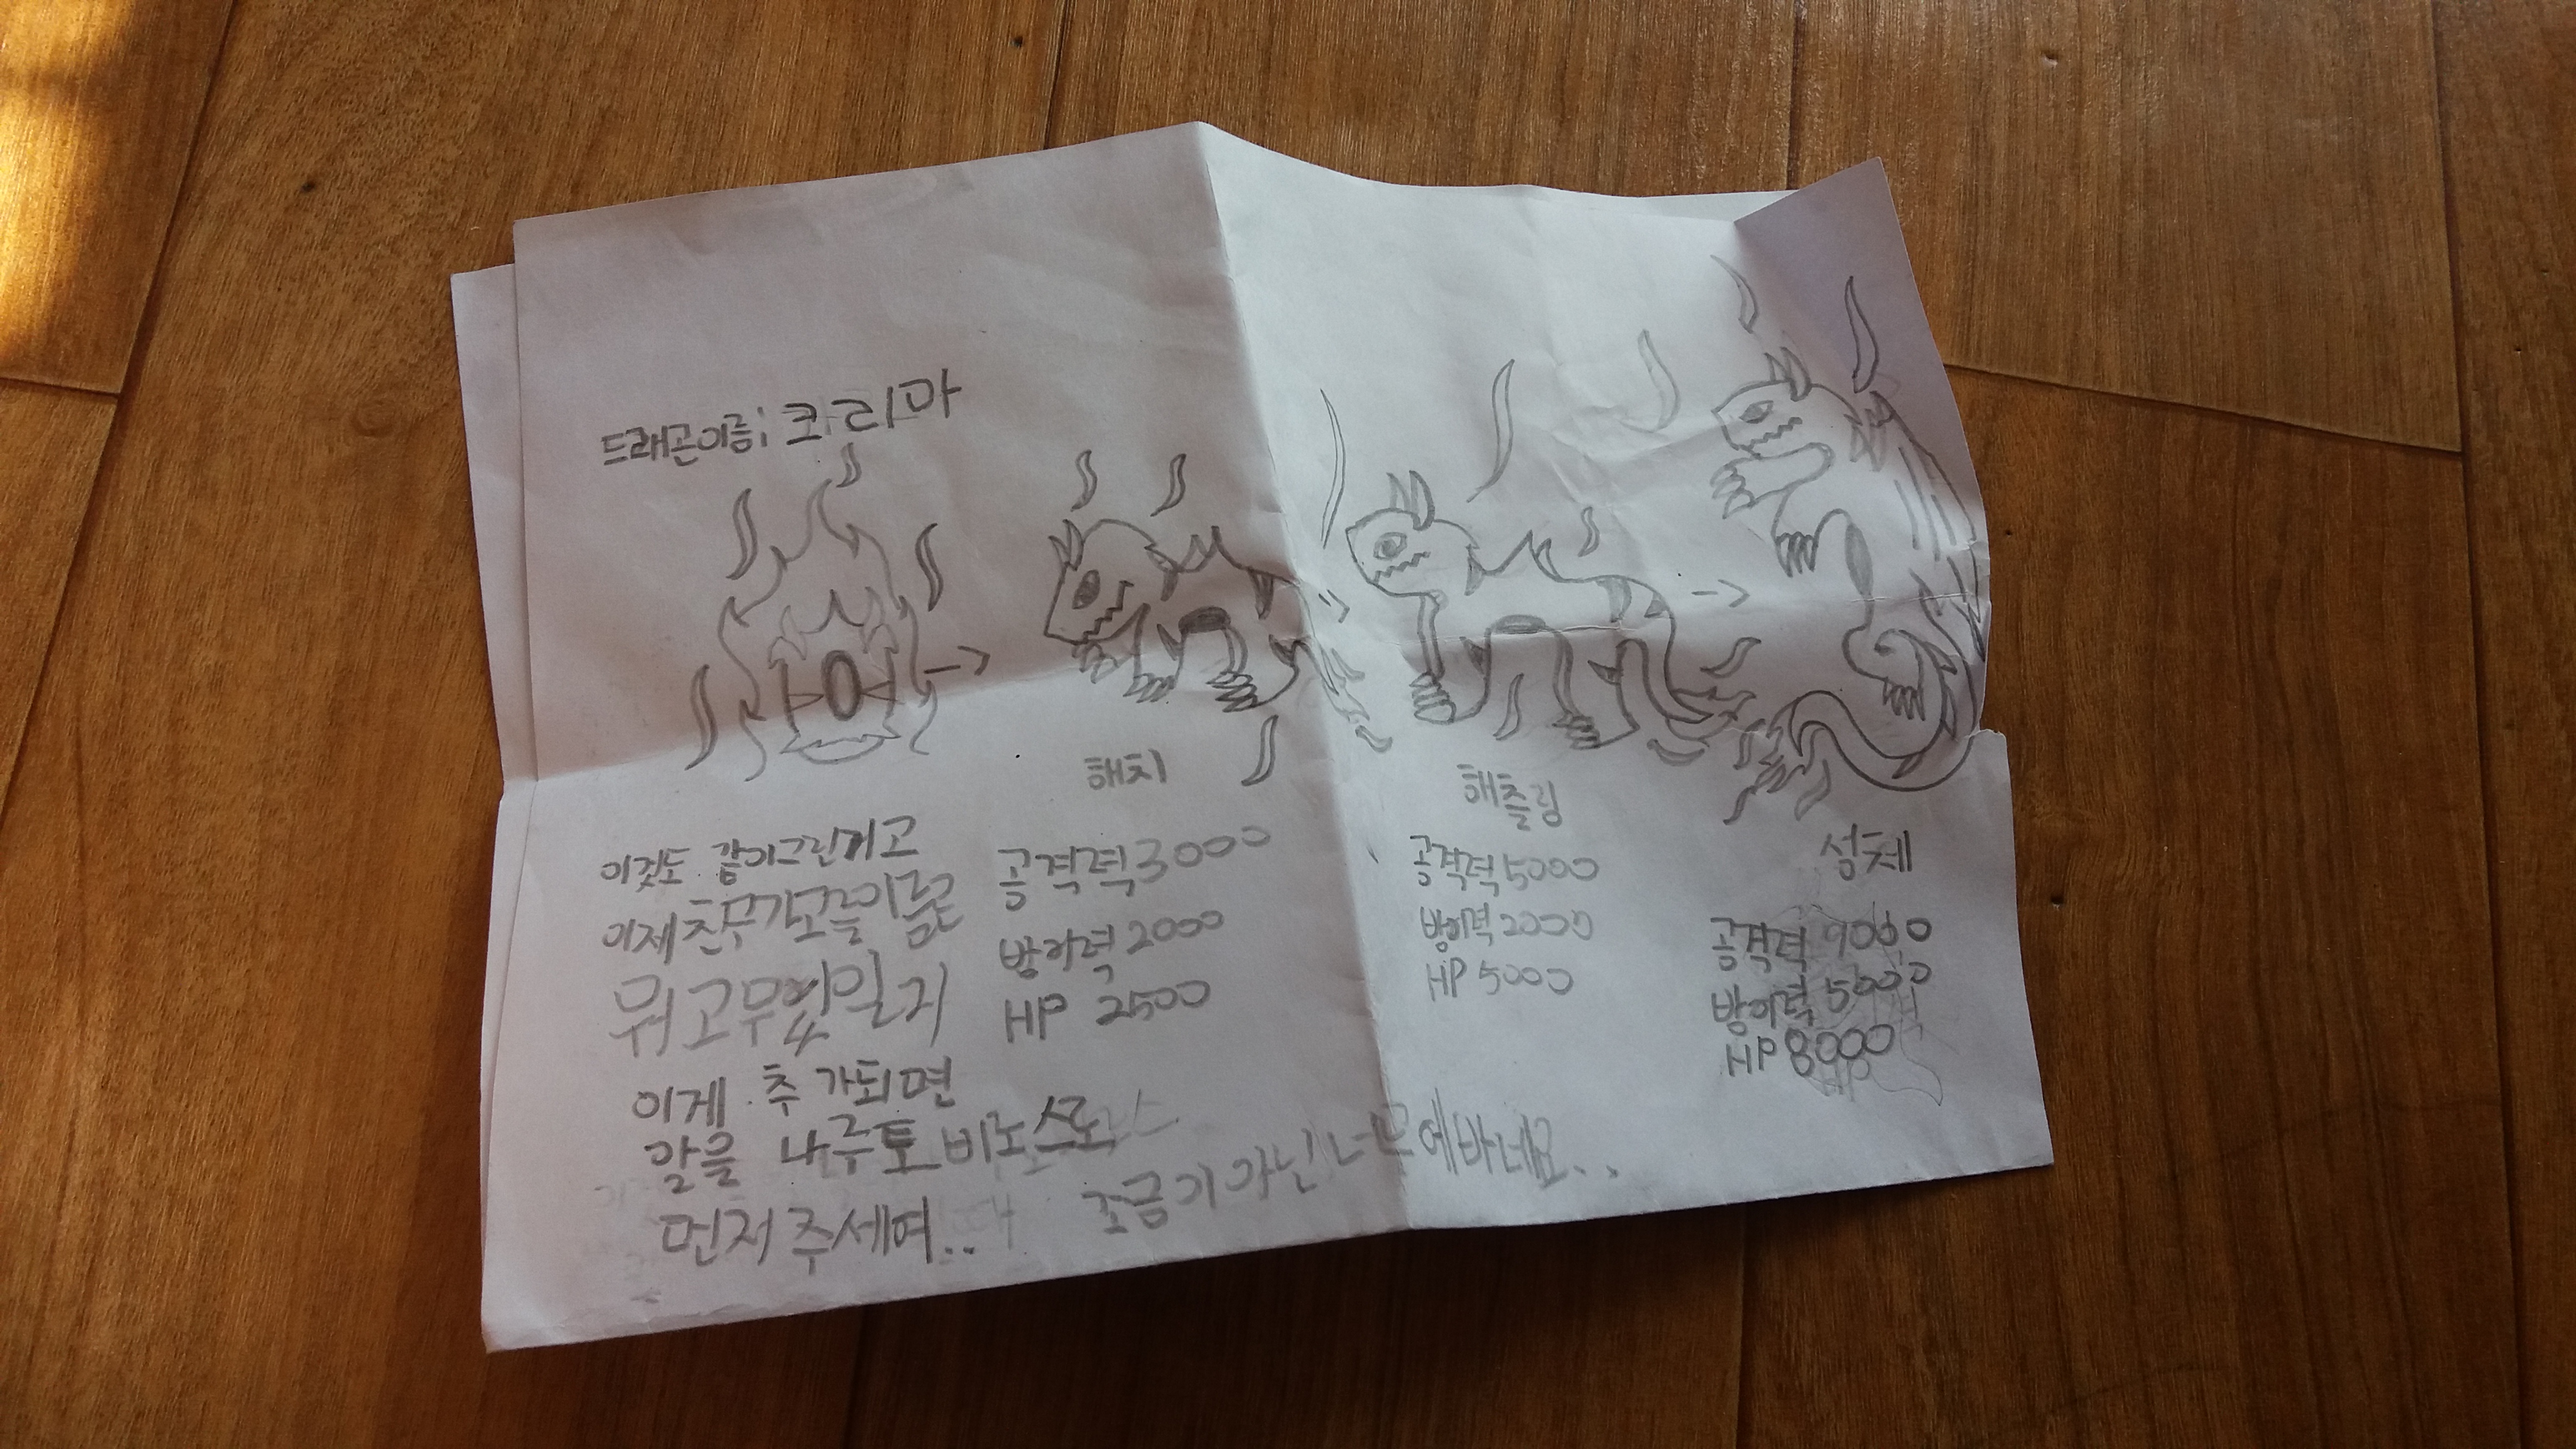 드래곤이름; 카리마
해치
해츨링
성체
이것도 같이그린거고
이제
뭐고
이게 추가되면
알을 나루토비노스로
먼저 주세여..
공격력 3000
방어력 2000
HP 2500
공격력 5000
방어력 2000
HP 5000
공격력 9000
방어력 5000
HP 8000
조금이 아닌 너무 에바네요..